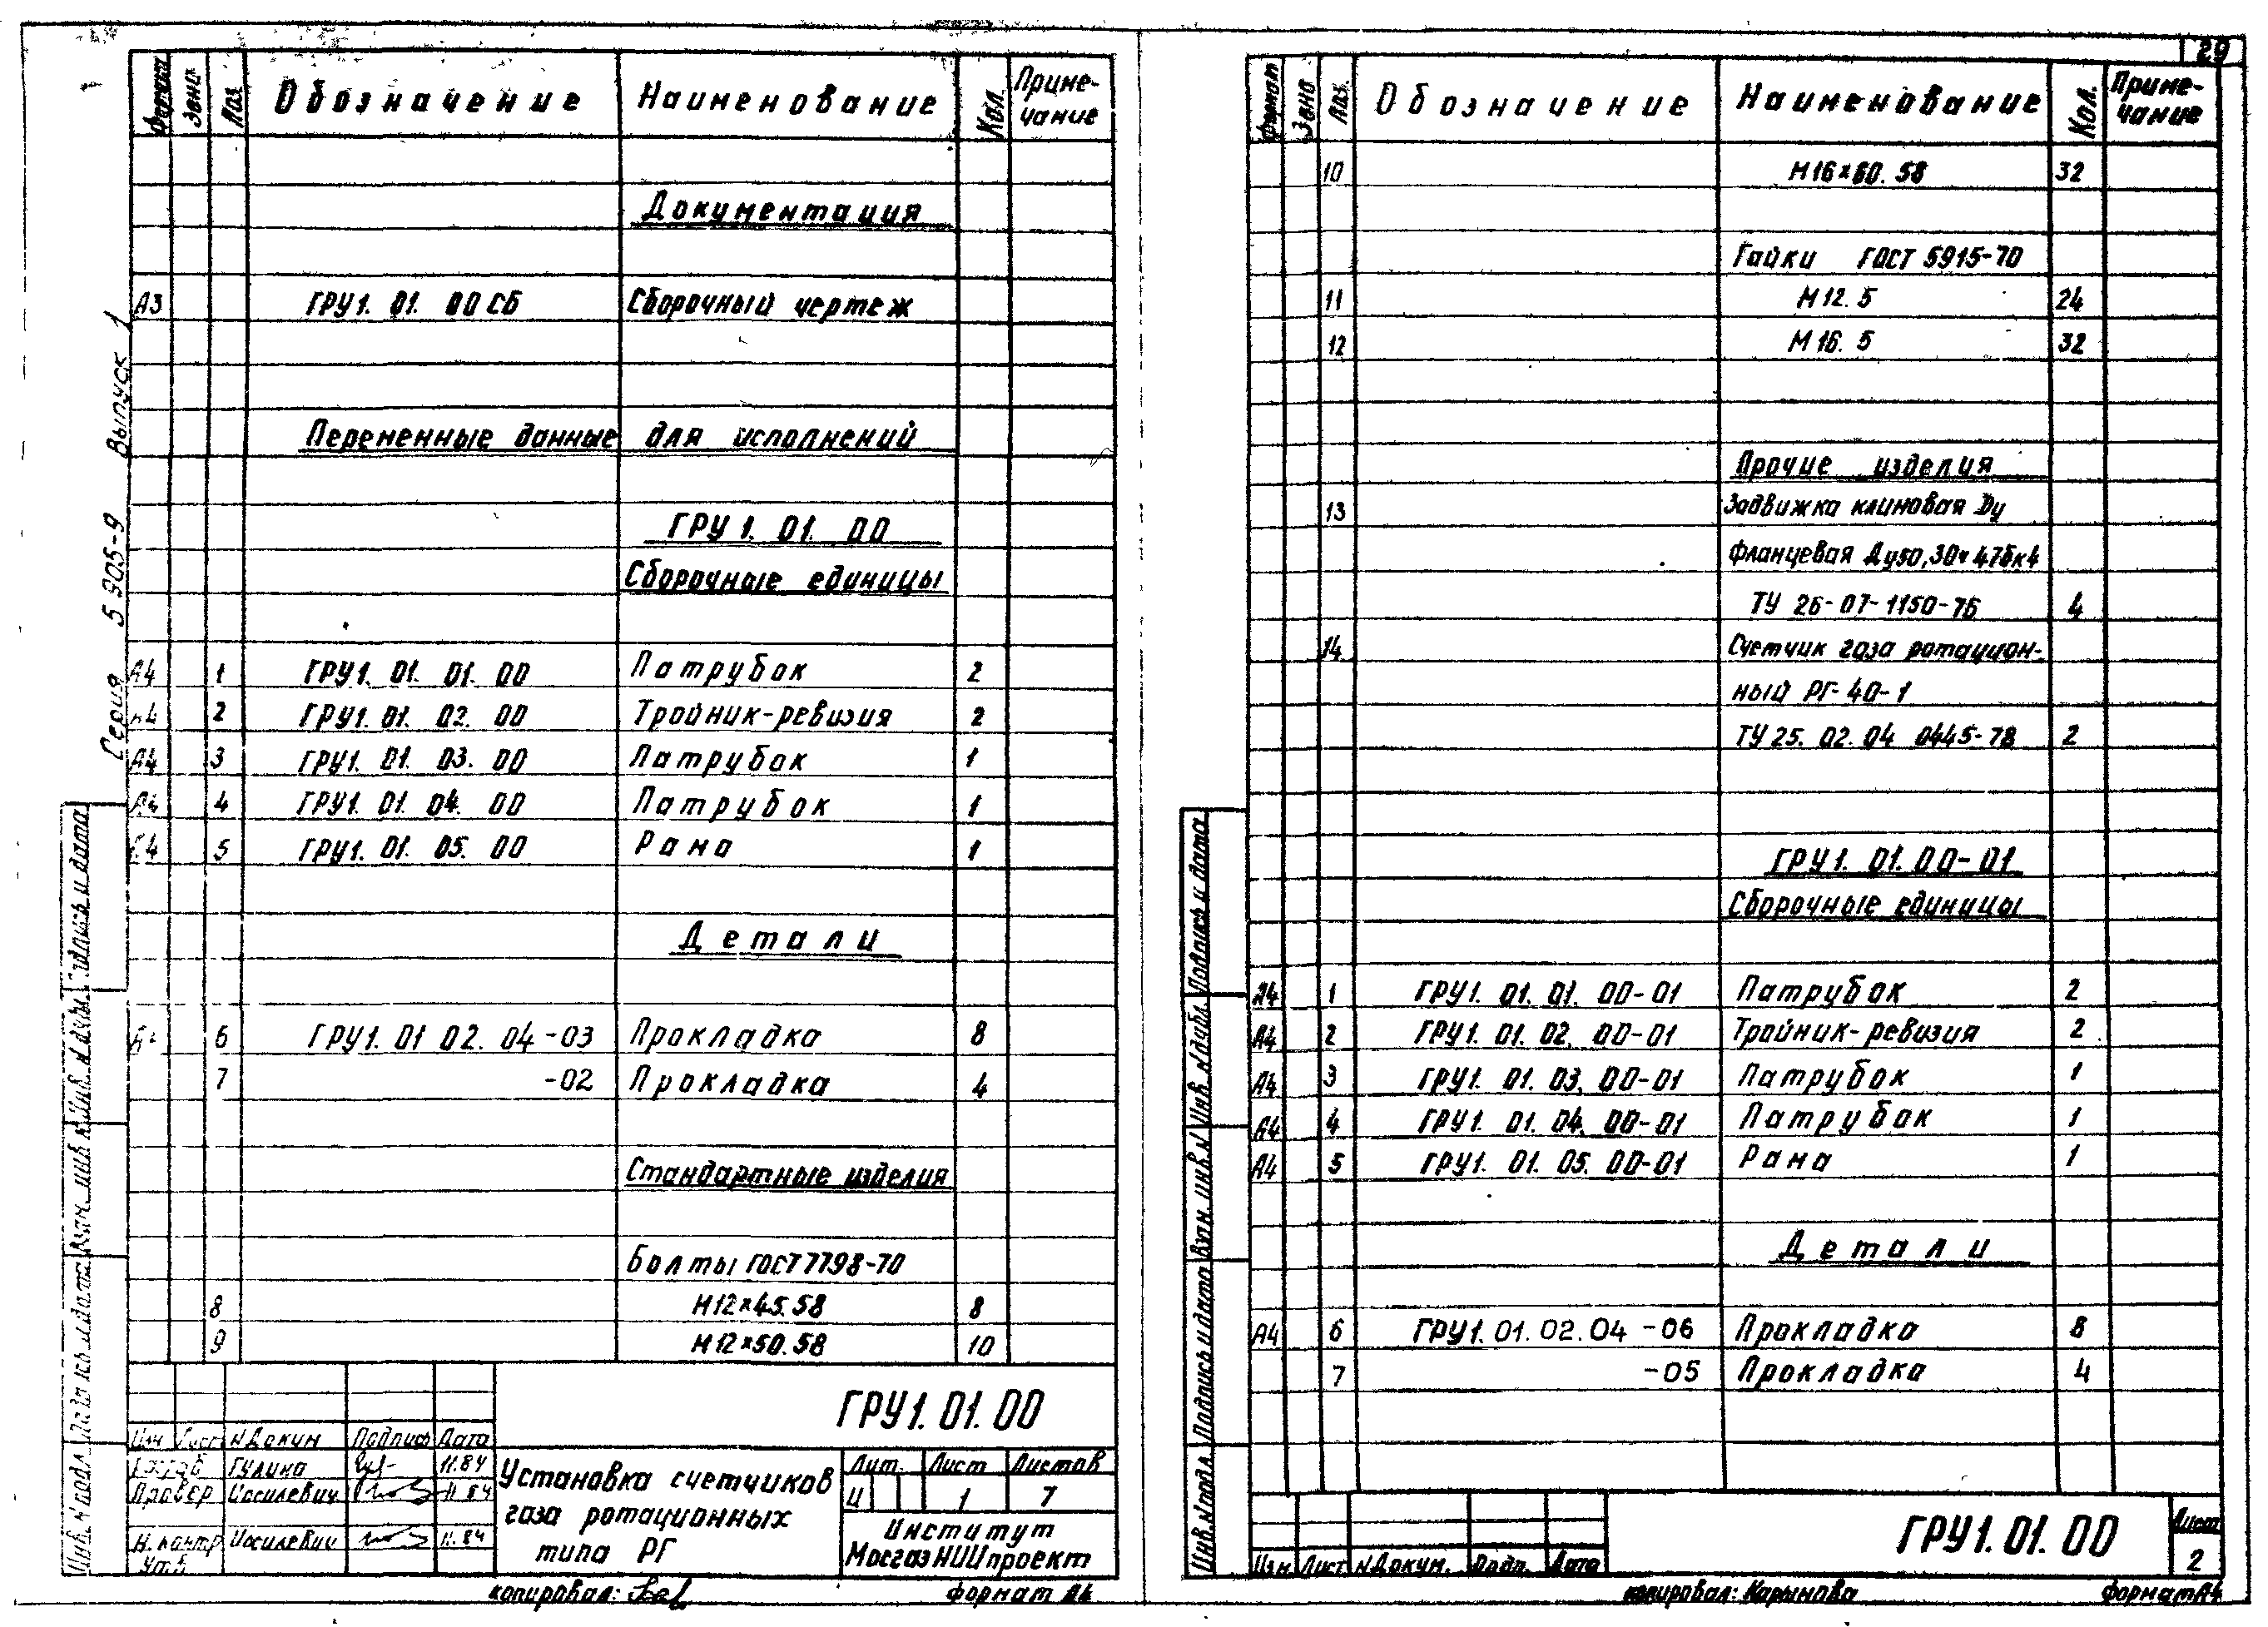 29
Серия 5.905-9 Выпуск 1
Формат Зона Поз. Обозначение Наименование Кол. Приме-
чание
Документация
А3 ГРУ1. 01. 00 СБ Сборочный чертеж
Переменные данные для исполнений
ГРУ 1. 01. 00
Сборочные единицы
А4 1 ГРУ1. 01. 01. 00 Патрубок 2
А4 2 ГРУ1. 01. 02. 00 Тройник-ревизия 2
А4 3 ГРУ1. 01. 03. 00 Патрубок 1
А4 4 ГРУ1. 01. 04. 00 Патрубок 1
А4 5 ГРУ1. 01. 05. 00 Рама 1
Детали
6 ГРУ1. 01 02. 04 -03 Прокладка 8
7 -02 Прокладка 4
Стандартные изделия
Болты ГОСТ 7798-70
8 М12×45.58 8
9 М12×50.58 10
ГРУ1. 01. 00
Изм Лист № Докум Подпись Дата
Разраб Гулина 11.84
Провер Иосилевич 11 84
Н. контр Иосилевич 11.84
Утв.
Установка счетчиков
газа ротационных
типа РГ
Лит. Лист Листов
И 1 7
Институт
МосгазНИИпроект
копировал: формат А4
Инв. № подл. Подпись и дата Взам. инв. № Инв. № дубл. Подпись и дата
Формат Зона Поз. Обозначение Наименование Кол. Приме-
чание
10 М16×60. 58 32
Гайки ГОСТ 5915-70
11 М12. 5 24
12 М16. 5 32
Прочие изделия
13 Задвижка клиновая Dу
фланцевая Ду50, 30ч 47бк4
ТУ 26-07-1150-76 4
14 Счетчик газа ротацион-
ный РГ-40-1
ТУ 25. 02. 04 0445-78 2
ГРУ1. 01. 00-01
Сборочные единицы
А4 1 ГРУ1. 01. 01. 00-01 Патрубок 2
А4 2 ГРУ1. 01. 02. 00-01 Тройник-ревизия 2
А4 3 ГРУ1. 01. 03. 00-01 Патрубок 1
А4 4 ГРУ1. 01. 04. 00-01 Патрубок 1
А4 5 ГРУ1. 01. 05. 00-01 Рама 1
Детали
А4 6 ГРУ1. 01. 02. 04 -06 Прокладка 8
7 -05 Прокладка 4
ГРУ1. 01. 00
Лист
2
Изм Лист № Докум. Подп. Дата
копировал: Карынова формат А4
Инв. № подл. Подпись и дата Взам. инв. № Инв. № дубл. Подпись и дата